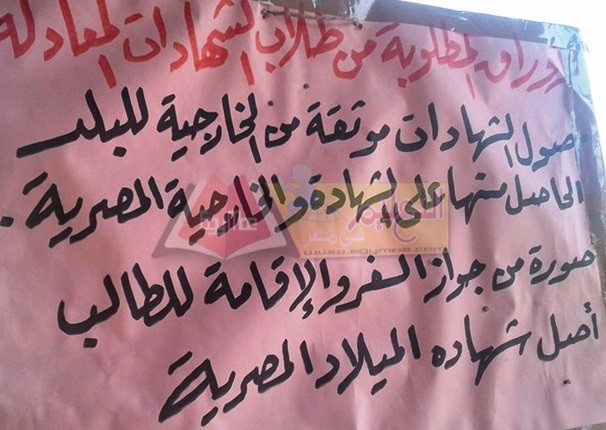 الأوراق المطلوبة من طلاب الشهادات المعادلة
أصول الشهادات موثقة من الخارجية للبلد
الحاصل منها على الشهادة والخارجية المصرية.
صورة من جواز السفر والإقامة للطالب
أصل شهاده الميلاد المصرية
التعليم
في مصر